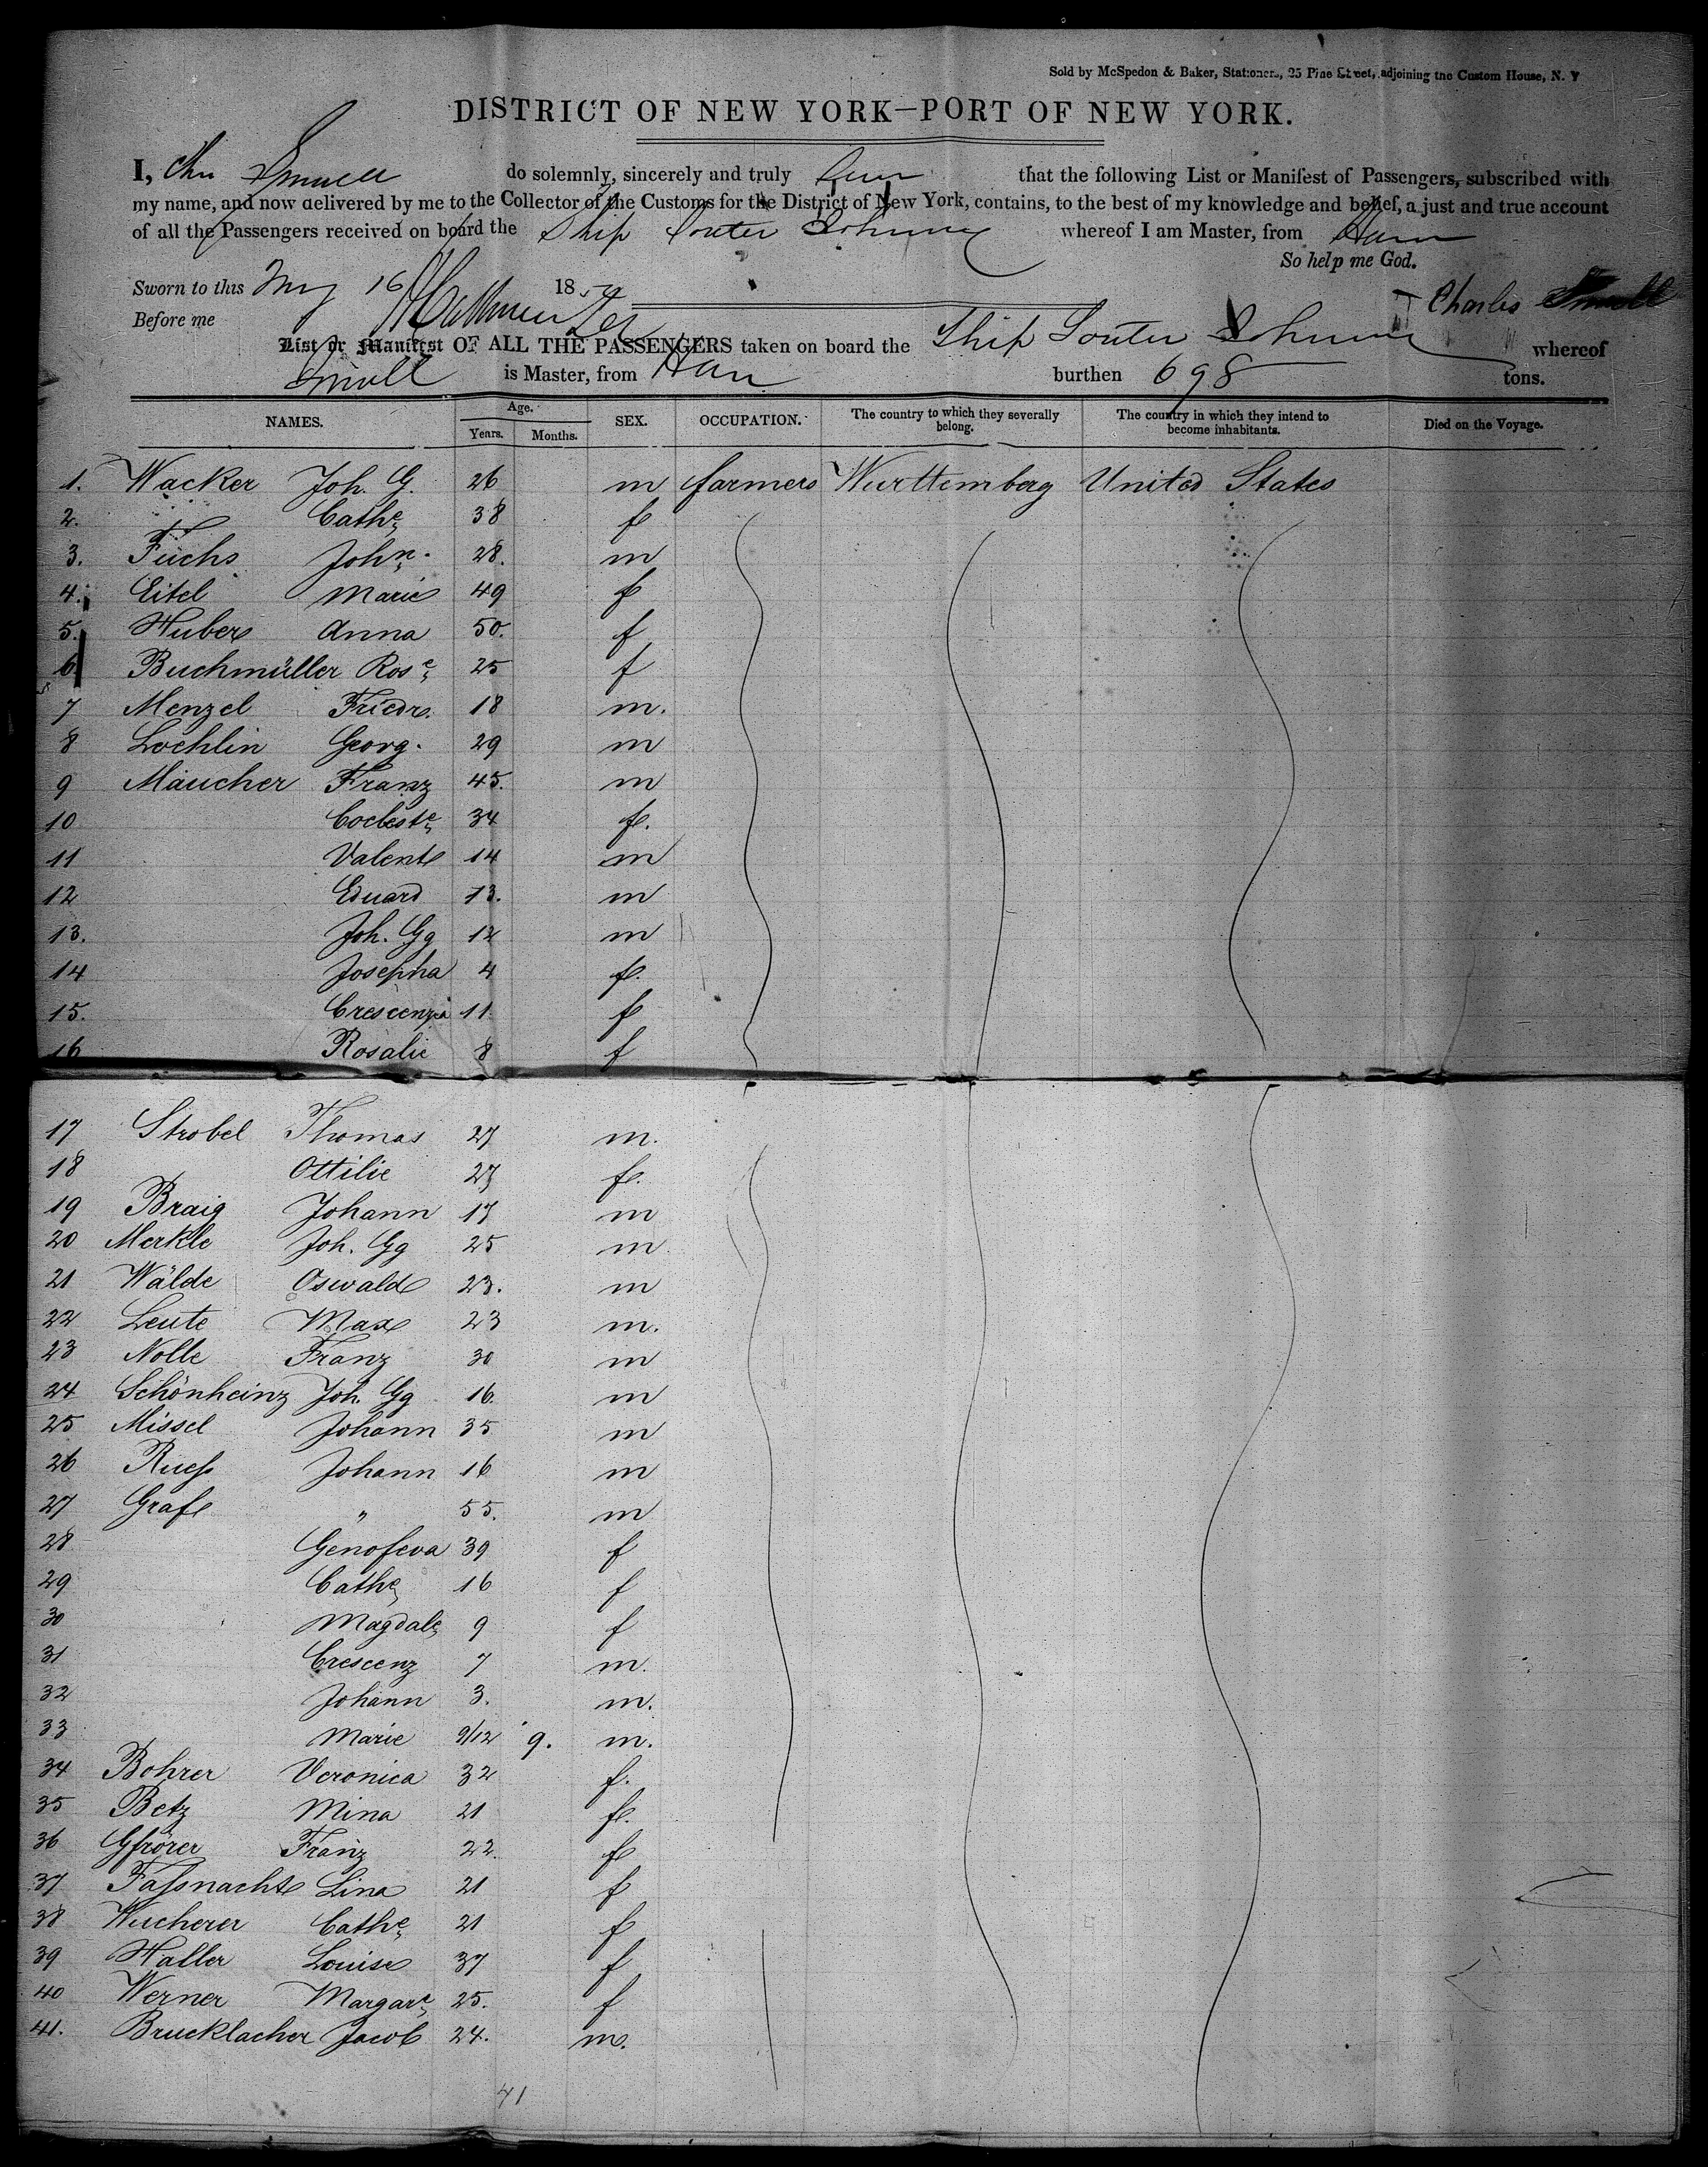 Sold by McSpedon & Baker, Stationers, 25 Pine Street, adjoining the Custom House, N. Y
DISTRICT OF NEW YORK—PORT OF NEW YORK.
I, Chs Smull do solemnly, sincerely and truly that the following List or Manifest of Passengers, subscribed with
my name, and now delivered by me to the Collector of the Customs for the District of New York, contains, to the best of my knowledge and belief, a just and true account
of all the Passengers received on board the Ship Souter Johnny whereof I am Master, from Havre
So help me God.
Sworn to this May 16 18
Charles Smull
Before me
List or Manifest OF ALL THE PASSENGERS taken on board the Ship Souter Johnny whereof
Smull is Master, from burthen 698 tons.
NAMES. Age. Years. Months. SEX. OCCUPATION. The country to which they severally belong. The country in which they intend to become inhabitants. Died on the Voyage.
1. Wacker Joh. G. 26 m farmers Wurttemberg United States
2. " Cathe 38 f
3. Fuchs John. 28. m
4. Eitel Marie 49 f
5. Huber Anna 50. f
6 Buchmüller Rose 25 f
7 Menzel Friedr. 18 m.
8 Lochlin Georg. 29 m
9 Maucher Franz 45. m
10 Coeleste 34 f.
11 Valent 14 m
12 Eduard 13. m
13. Joh. Gg 12 m
14 Josepha 4 f.
15. Crescenzia 11. f
16 Rosalie 8 f
17 Strobel Thomas 27 m.
18 Ottilie 27 f.
19 Braig Johann 17 m
20 Merkle Joh. Gg 25 m
21 Wälde Oswald 23. m
22 Leute Max 23 m.
23 Nolle Franz 30 m
24 Schönheinz Joh. Gg 16. m
25 Missel Johann 35 m
26 Ruess Johann 16 m
27 Graf " 55. m
28 Genofeva 39 f
29 Cathe 16 f
30 Magdale 9 f
31 Crescenz 7 m.
32 Johann 3. m.
33 Marie 9/12 9. m.
34 Bohrer Veronica 32 f.
35 Betz Mina 21 f.
36 Gfrörer Franz 22. f
37 Fassnacht Lina 21 f
38 Wucherer Cathe 21 f
39 Haller Louise 37 f
40 Werner Margare 25. f
41. Brucklacher Jacob 24. m.
41